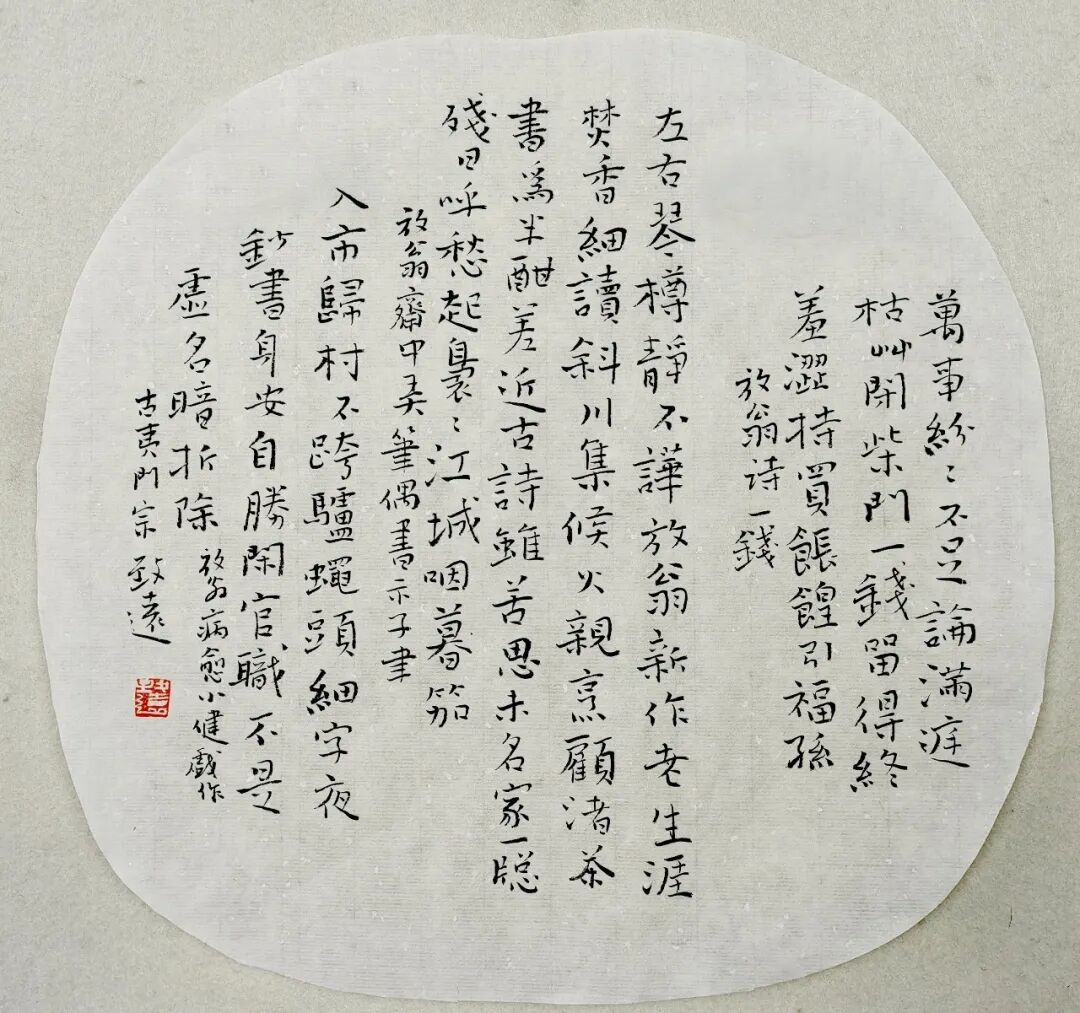 萬事紛〻不足論滿庭
枯艸閉柴門一錢留得終
羞澀持買餦餭引福孫
放翁诗一錢
左右琴樽靜不譁放翁新作老生涯
焚香細讀斜川集候火親烹顧渚茶
書爲半酣差近古詩雖苦思未名家一牕
殘日呼愁起裊〻江城咽暮笳
放翁齋中弄筆偶書示子聿
入市歸村不跨驢蠅頭細字夜
鈔書身安自勝閑官職不是
虛名暗折除 放翁病愈小健戲作
古夷門宗致遠